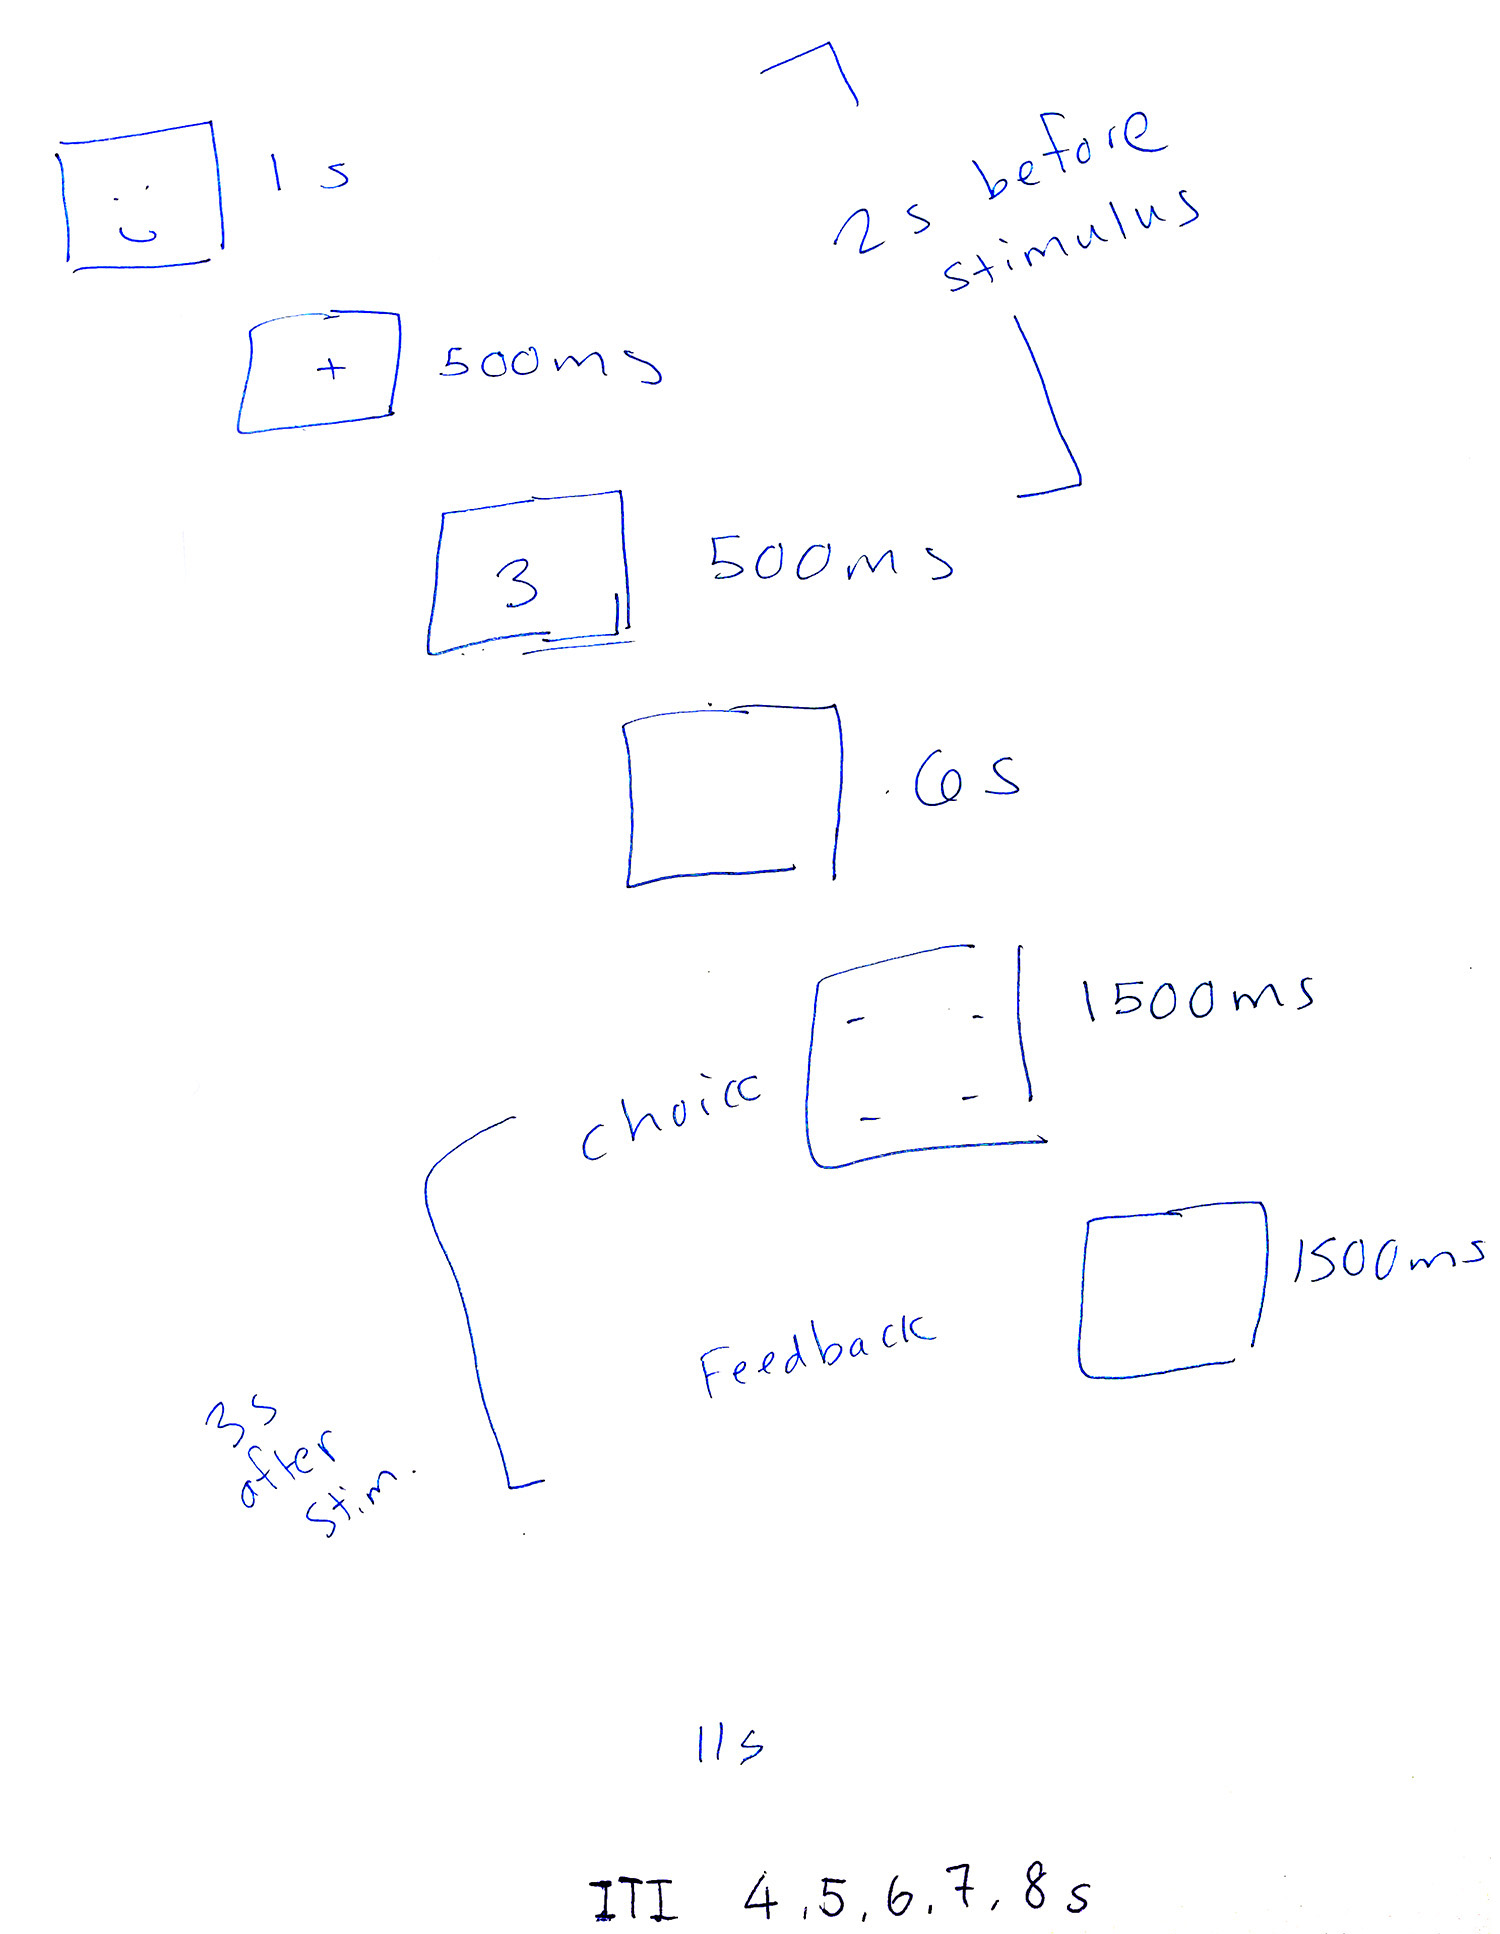 1 s
2 s before
stimulus
+
500ms
3
500ms
.6s
1500ms
choice
1500ms
Feedback
3s
after
stim.
11s
ITI 4,5,6,7,8s